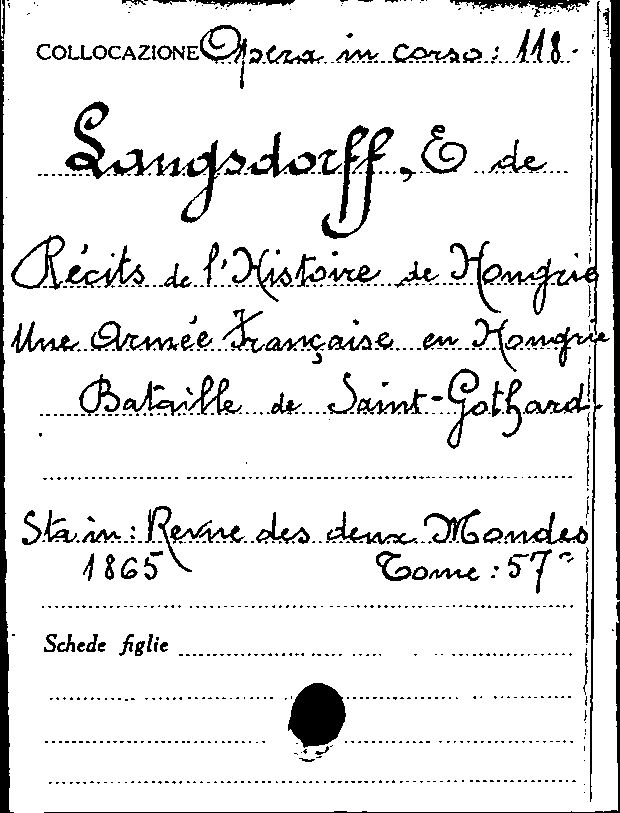 COLLOCAZIONE Opera in corso: 118.
Langsdorff, E de
Récits de l'Histoire de Hongrie
Une Armée Française en Hongrie
Bataille de Saint-Gothard.
Sta in: Revue des deux Mondes
1865 Tome: 57°
Schede figlie